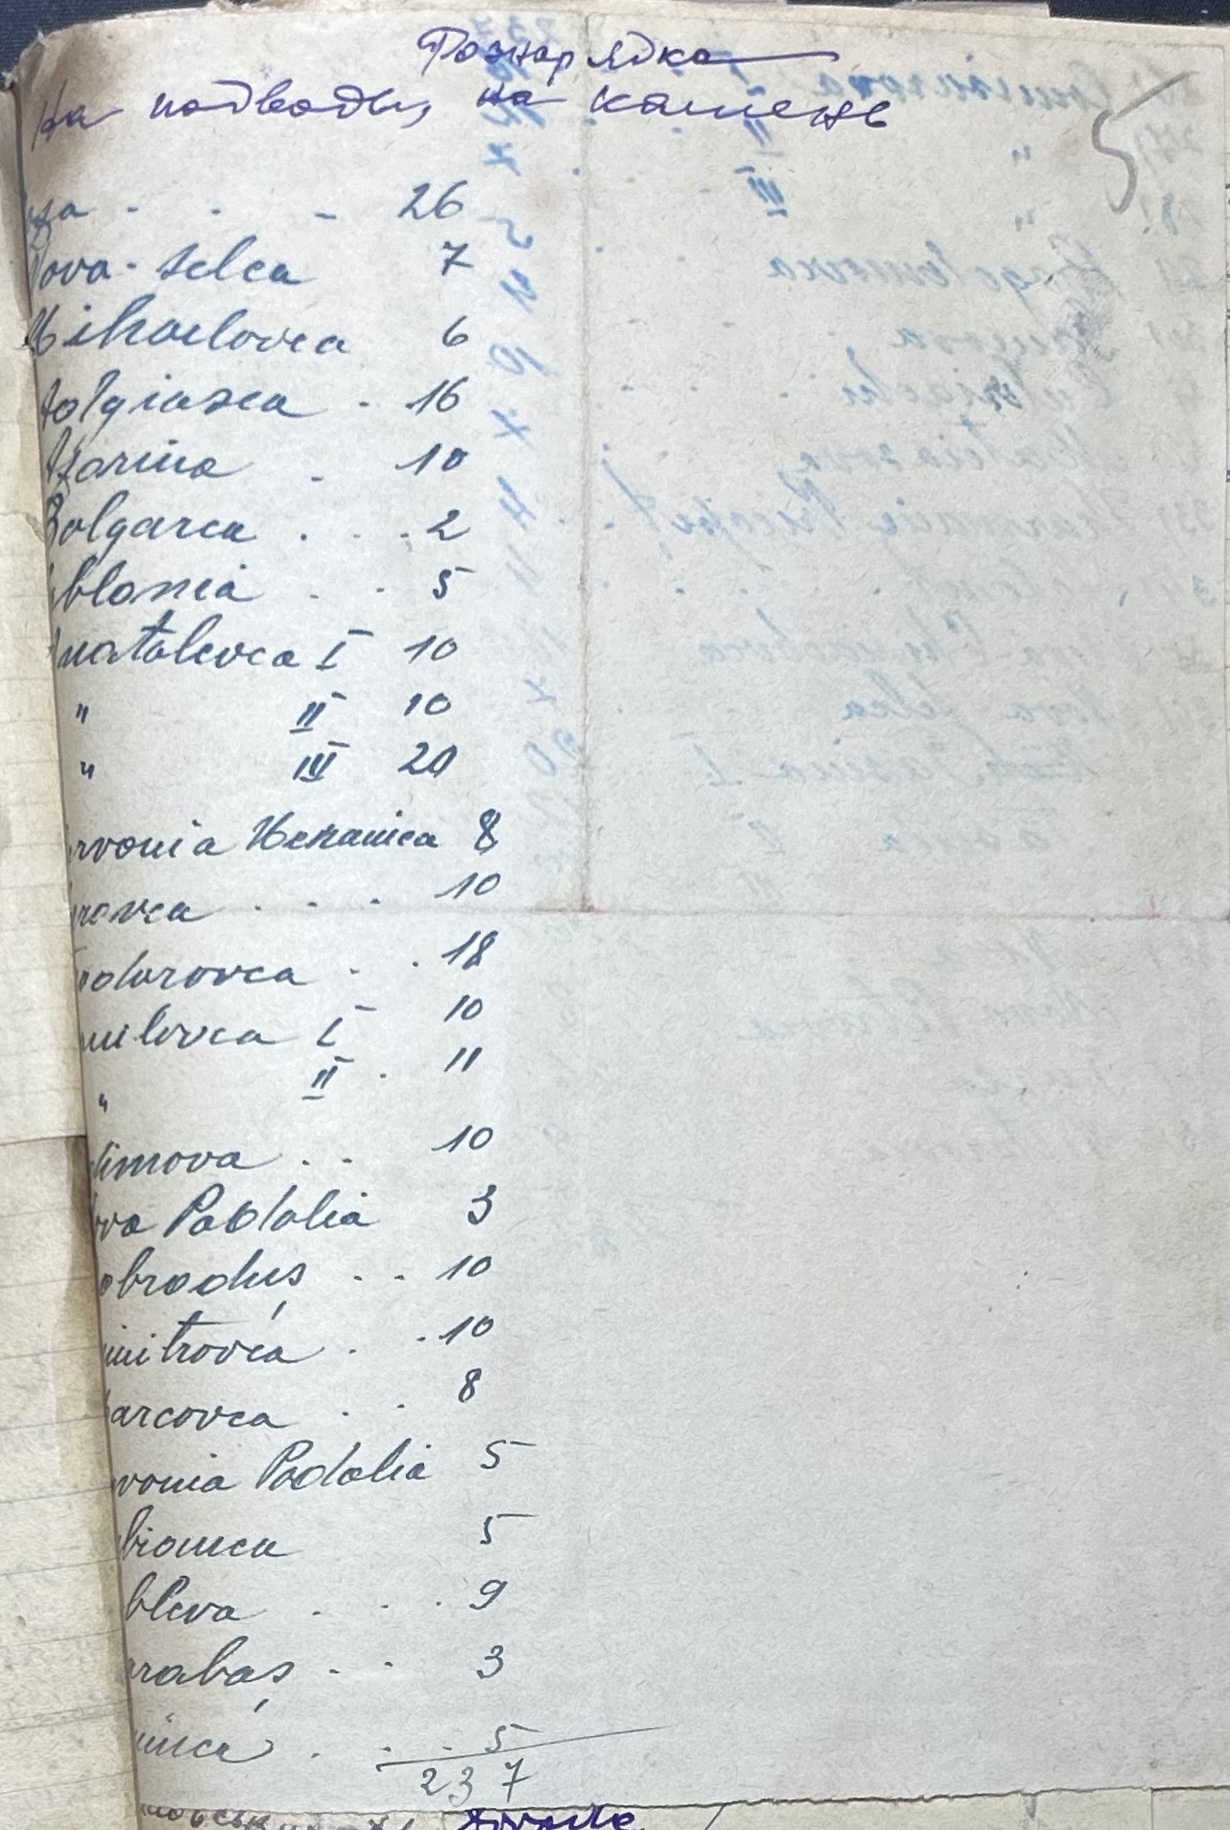 Рознарядка
На подводы, на камень
5
za - . . - 26
Nova-Selca 7
Mihaelovca 6
Dolgiasca . 16
Tzarina . 10
Bolgarca . . . 2
blonia . . 5
natolevca I 10
" II 10
" III 20
rvonia Ucrainca 8
rovca . . . 10
odorovca . . 18
milovca I 10
" II . 11
dimova . . 10
ova Padolia 3
obroduș . . 10
mitrovca . . 10
arcovca . . 8
vonia Podolia 5
bionca 5
bleva . . . 9
arabaș . . 3
inca . . . 5
237